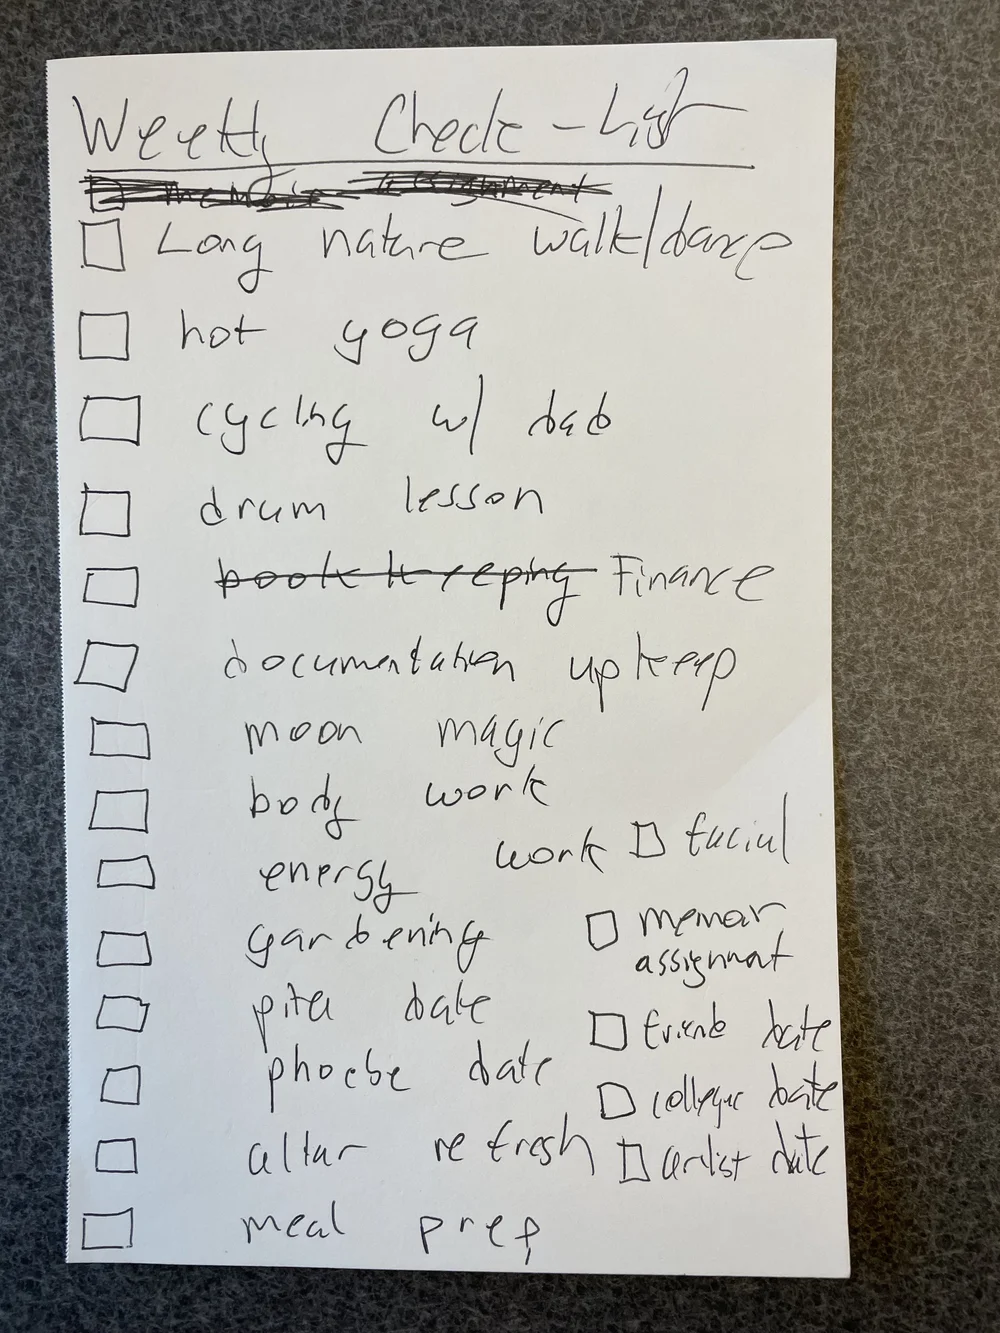 Weekly Check-List
memoir assignment
Long nature walk/dance
hot yoga
cycling w/ dad
drum lesson
book keeping Finance
documentation upkeep
moon magic
body work
energy work
facial
gardening
memoir
assignment
pita date
friend date
phoebe date
collegue date
altar refresh
artist date
meal prep